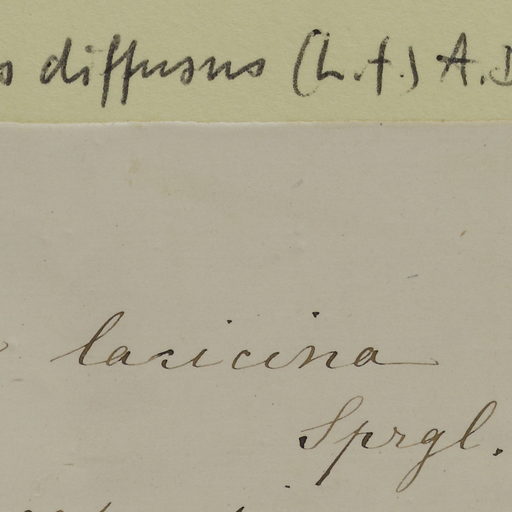 s diffusus (L.f.) A.D
laricina
Sprgl.